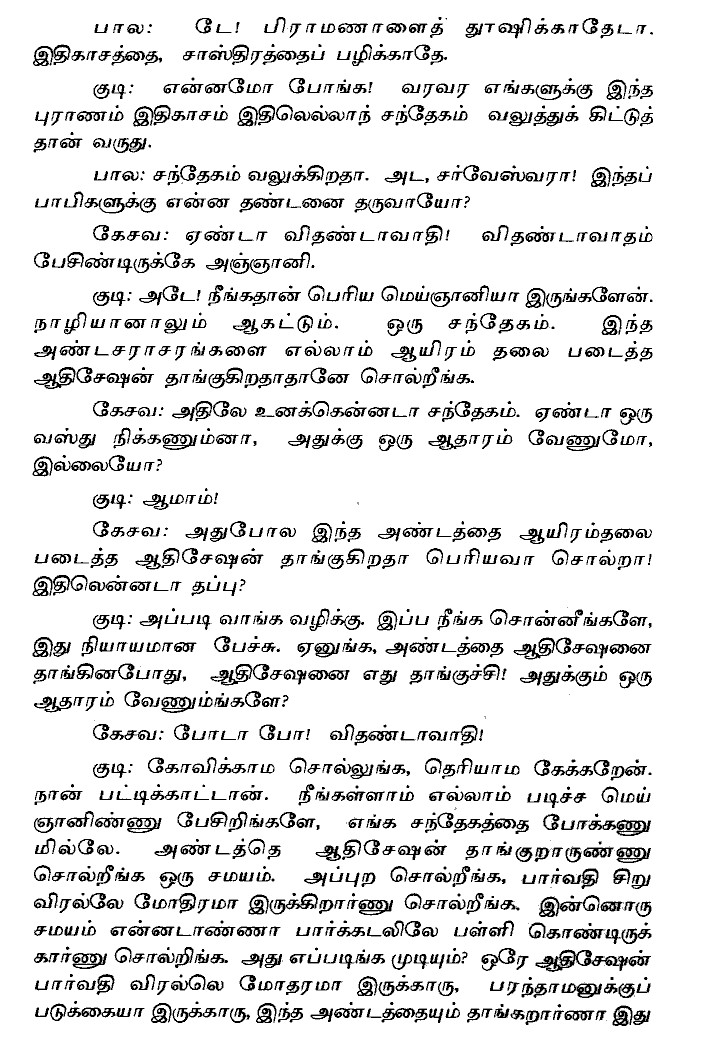 பால: டே! பிராமணாளைத் தூஷிக்காதேடா.
இதிகாசத்தை, சாஸ்திரத்தைப் பழிக்காதே.
குடி: என்னமோ போங்க! வரவர எங்களுக்கு இந்த
புராணம் இதிகாசம் இதிலெல்லாந் சந்தேகம் வலுத்துக் கிட்டுத்
தான் வருது.
பால: சந்தேகம் வலுக்கிறதா. அட, சர்வேஸ்வரா! இந்தப்
பாபிகளுக்கு என்ன தண்டனை தருவாயோ?
கேசவ: ஏண்டா விதண்டாவாதி! விதண்டாவாதம்
பேசிண்டிருக்கே அஞ்ஞானி.
குடி: அடே! நீங்கதான் பெரிய மெய்ஞானியா இருங்களேன்.
நாழியானாலும் ஆகட்டும். ஒரு சந்தேகம். இந்த
அண்டசராசரங்களை எல்லாம் ஆயிரம் தலை படைத்த
ஆதிசேஷன் தாங்குகிறதாதானே சொல்றீங்க.
கேசவ: அதிலே உனக்கென்னடா சந்தேகம். ஏண்டா ஒரு
வஸ்து நிக்கணும்னா, அதுக்கு ஒரு ஆதாரம் வேணுமோ,
இல்லையோ?
குடி: ஆமாம்!
கேசவ: அதுபோல இந்த அண்டத்தை ஆயிரம்தலை
படைத்த ஆதிசேஷன் தாங்குகிறதா பெரியவா சொல்றா!
இதிலென்னடா தப்பு?
குடி: அப்படி வாங்க வழிக்கு. இப்ப நீங்க சொன்னீங்களே,
இது நியாயமான பேச்சு. ஏனுங்க, அண்டத்தை ஆதிசேஷனை
தாங்கினபோது, ஆதிசேஷனை எது தாங்குச்சி! அதுக்கும் ஒரு
ஆதாரம் வேணும்ங்களே?
கேசவ: போடா போ! விதண்டாவாதி!
குடி: கோவிக்காம சொல்லுங்க, தெரியாம கேக்கறேன்.
நான் பட்டிக்காட்டான். நீங்கள்ளாம் எல்லாம் படிச்ச மெய்
ஞானிண்ணு பேசிறிங்களே, எங்க சந்தேகத்தை போக்கணு
மில்லே. அண்டத்தெ ஆதிசேஷன் தாங்குறாருண்ணு
சொல்றீங்க ஒரு சமயம். அப்புற சொல்றீங்க, பார்வதி சிறு
விரல்லே மோதிரமா இருக்கிறார்ணு சொல்றீங்க. இன்னொரு
சமயம் என்னடாண்ணா பார்க்கடலிலே பள்ளி கொண்டிருக்
கார்ணு சொல்றிங்க. அது எப்படிங்க முடியும்? ஒரே ஆதிசேஷன்
பார்வதி விரல்லெ மோதரமா இருக்காரு, பரந்தாமனுக்குப்
படுக்கையா இருக்காரு, இந்த அண்டத்தையும் தாங்கறார்ணா இது